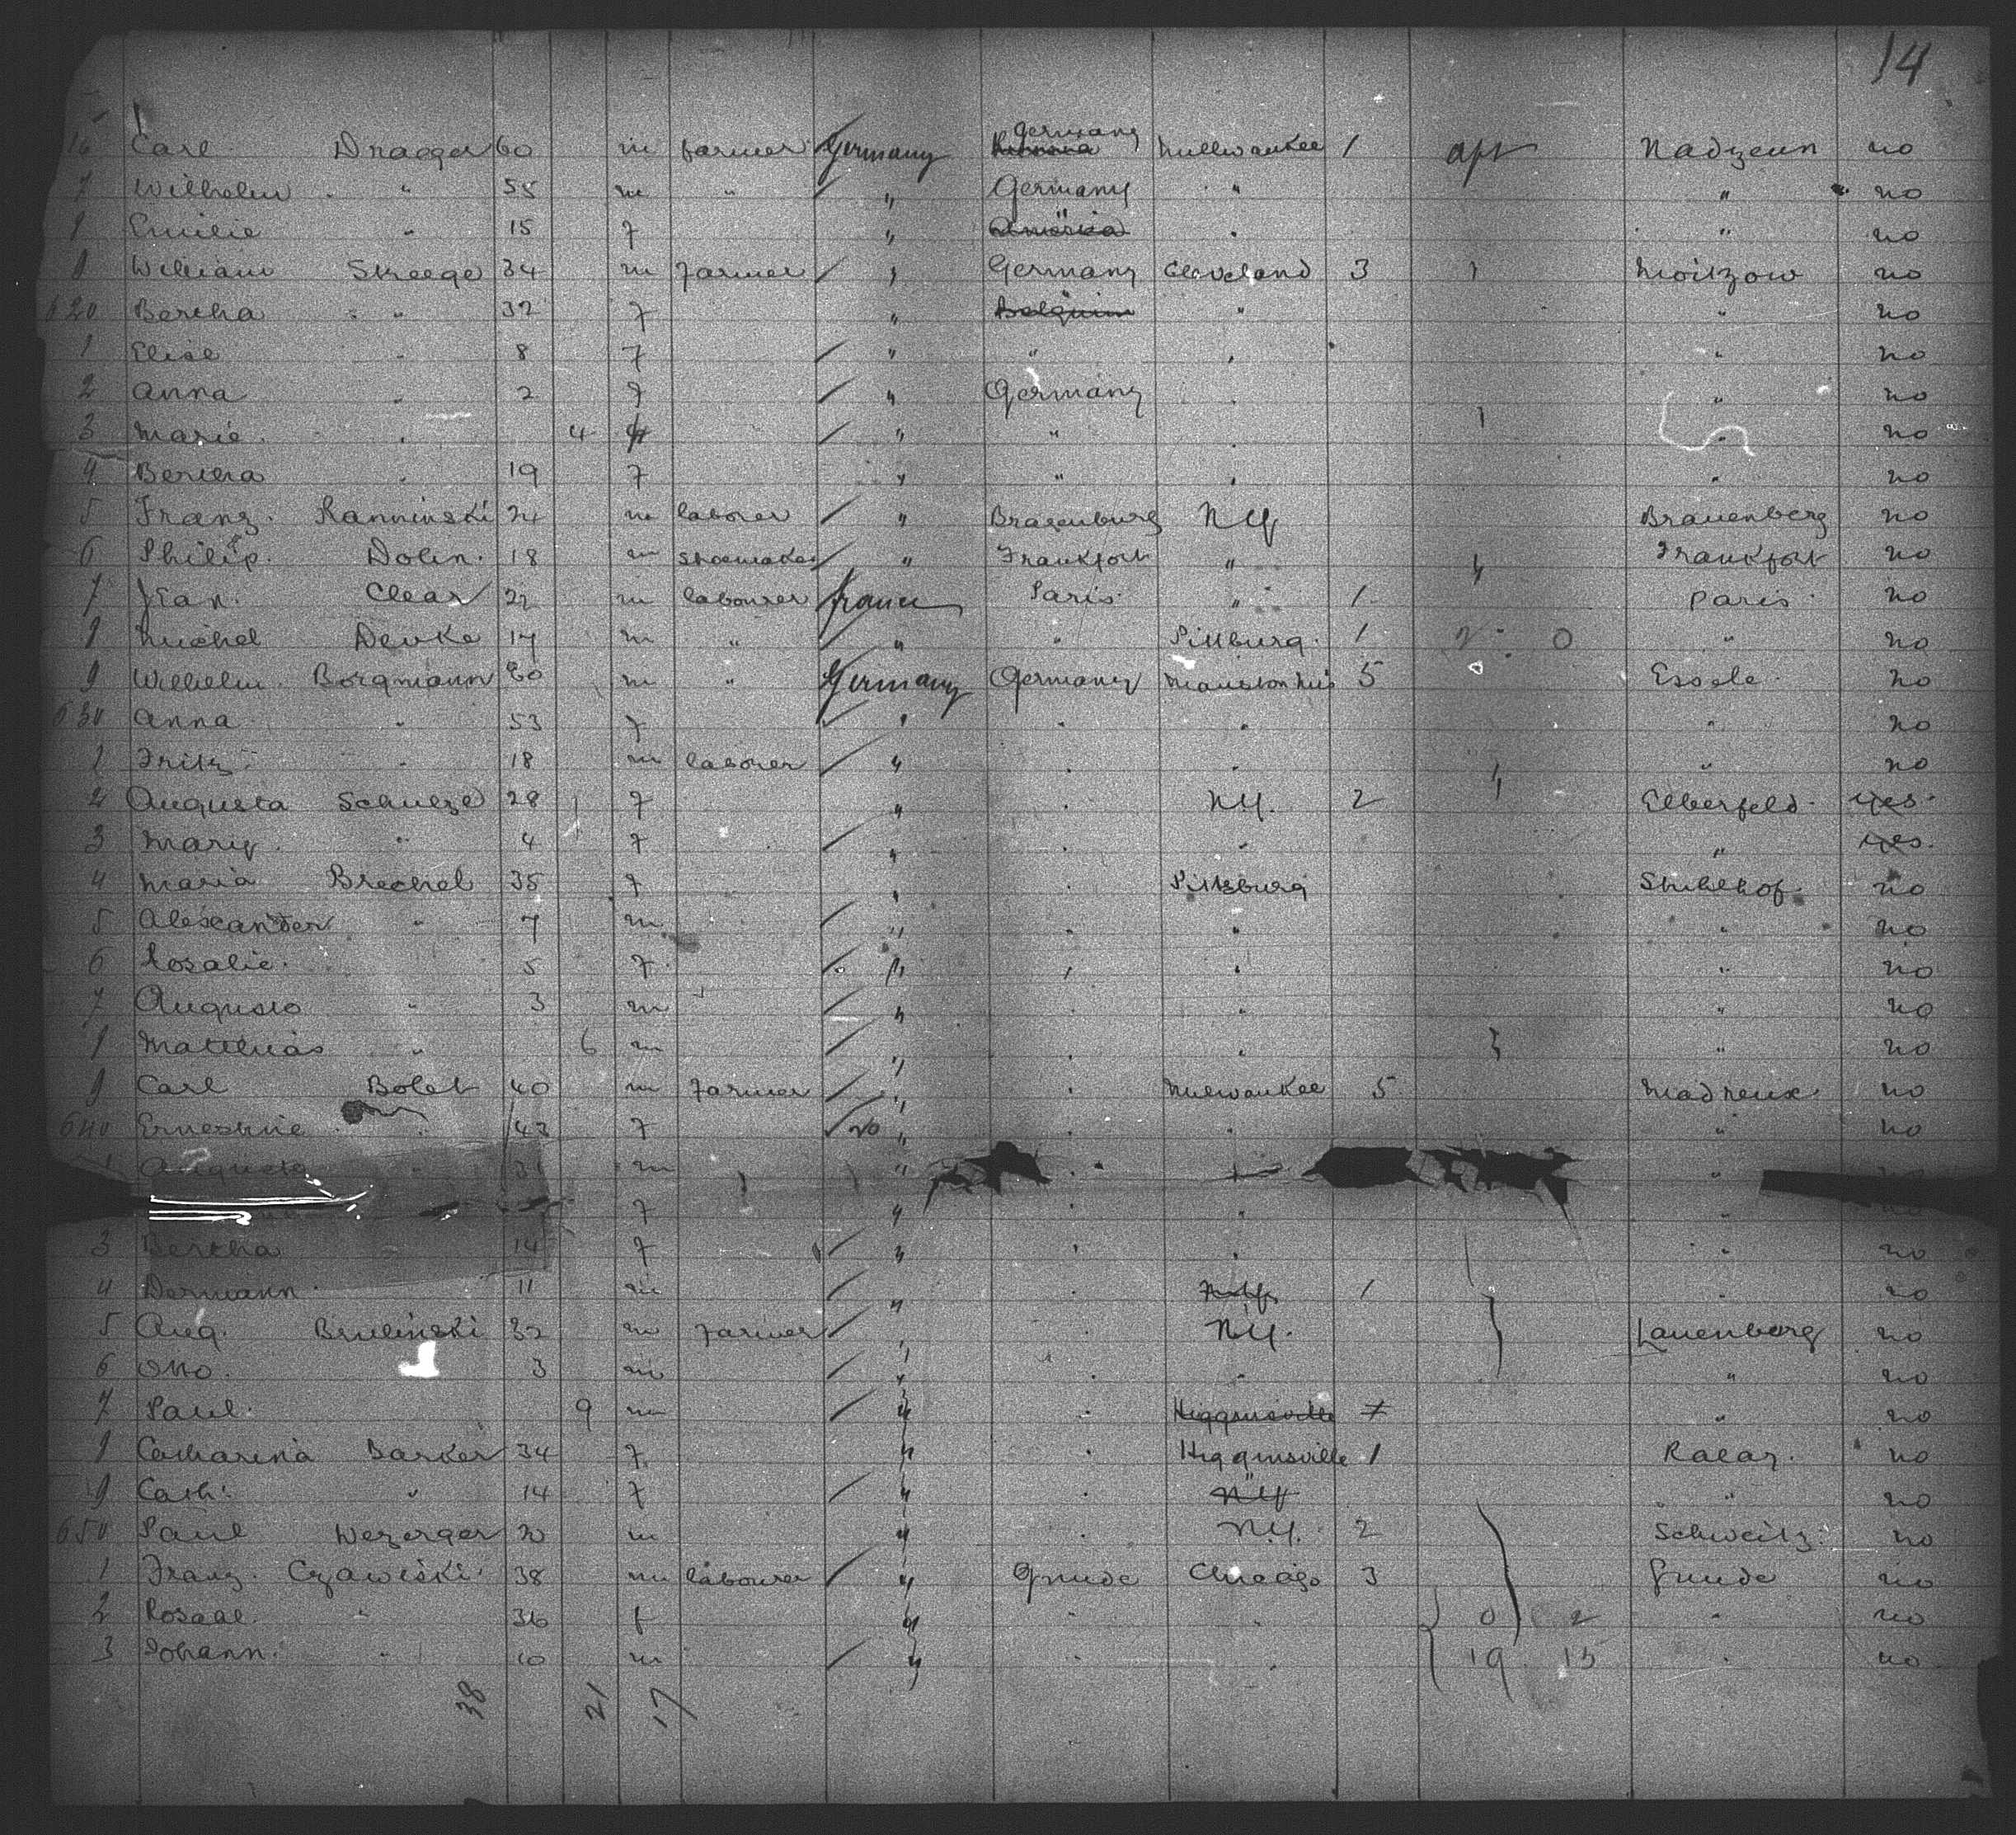 14
16 Carl Draeger 60 m farmer Germany Germany Millwaukee 1 apt Nadzeun no
7 Wilhelm " 55 m " " Germany " " no
8 Emilie " 15 f " " " " no
9 William Streege 34 m farmer " Germany Cleveland 3 Moitzow no
620 Bertha " 32 f " Belgium " " no
1 Elise " 8 f " " " " no
2 Anna " 2 f " Germany " " no
3 Marie " 4 f " " " " no
4 Bertha " 19 f " " " " no
5 Franz Ranninski 24 m laborer " Bragenburg NY Brauenberg no
6 Philip Dolin 18 m shoemaker " Frankfort " Frankfort no
7 Jean Clear 22 m labourer france Paris " 1 paris no
8 Michel Devke 17 m " " " Pittburg 1 " no
9 Wilhelm Borgmann 60 m " Germany Germany 5 Essele no
630 Anna " 53 f " " " " no
1 Fritz " 18 m laborer " " " " no
2 Augusta Schulze 28 f " " NY. 2 Elberfeld yes
3 Mary " 4 f " " " " yes
4 Maria Brechel 35 f " " Pittsburg Stuhlhof no
5 Alexander " 7 m " " " " no
6 Rosalie 5 f " " " " no
7 Augusto " 3 m " " " " no
8 Matthias " 6 m " " " " no
9 Carl Bolet 40 m farmer " " Milwaukee 5 Madreux no
640 Ernestine " 43 f no " " " " no
1 Augusta " m " " "
f " " " " no
3 Bertha 14 f " " " " no
4 Dermann 11 m " " 1 " no
5 Aug. Brulinski 32 m farmer " " NY. Lauenberg no
6 Otto 3 m " " " " no
7 Paul 9 m " " Higginsville " no
8 Catharina Barker 34 f " " Higginsville 1 Ralaz. no
9 Cath. " 14 f " " NY " no
650 Paul Wezerger 20 m " " NY. 2 Schweitz no
1 Franz Czawiski 38 m labourer " Grude Chicago 3 Grude no
2 Rosaal. " 36 f " " " 0 2 " no
3 Johann. " 10 m " " " 19 15 " no
38 21 17